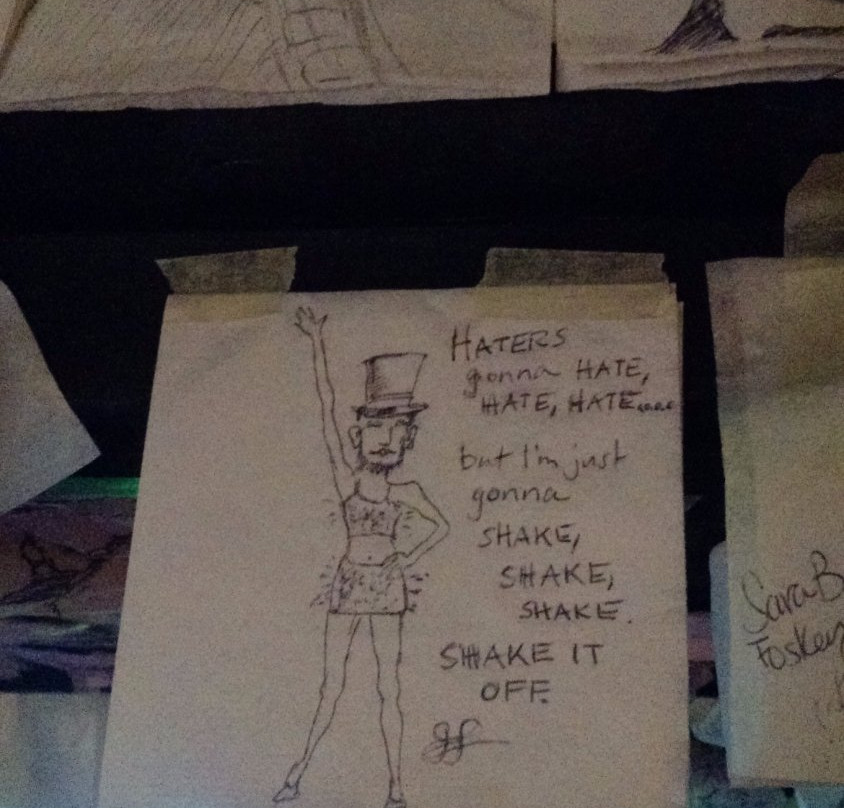 HATERS
gonna HATE,
HATE, HATE....
but I'm just
gonna
SHAKE,
SHAKE,
SHAKE.
SHAKE IT
OFF.
Sara B